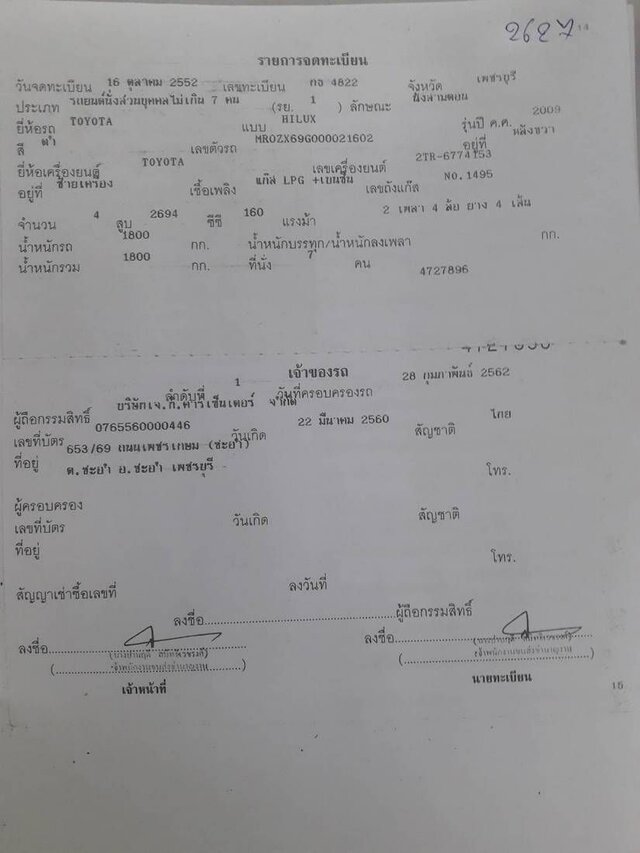 2627 14
รายการจดทะเบียน
วันจดทะเบียน 16 ตุลาคม 2552 เลขทะเบียน กจ 4822 จังหวัด เพชรบุรี
ประเภท รถยนต์นั่งส่วนบุคคลไม่เกิน 7 คน (รย. 1 ) ลักษณะ นั่งสามตอน
ยี่ห้อรถ TOYOTA แบบ HILUX รุ่นปี ค.ศ. 2009
สี ดำ เลขตัวรถ MR0ZX69G000021602 อยู่ที่ หลังขวา
ยี่ห้อเครื่องยนต์ TOYOTA เลขเครื่องยนต์ 2TR-6774153
อยู่ที่ ซ้ายเครื่อง เชื้อเพลิง แก๊ส LPG +เบนซิน เลขถังแก๊ส No.1495
จำนวน 4 สูบ 2694 ซีซี 160 แรงม้า 2 เพลา 4 ล้อ ยาง 4 เส้น
น้ำหนักรถ 1800 กก. น้ำหนักบรรทุก/น้ำหนักลงเพลา กก.
น้ำหนักรวม 1800 กก. ที่นั่ง 7 คน 4727896
เจ้าของรถ
ลำดับที่ 1 วันที่ครอบครองรถ 28 กุมภาพันธ์ 2562
ผู้ถือกรรมสิทธิ์ บริษัทเจ.ที.คาร์เซ็นเตอร์ จำกัด
เลขที่บัตร 0765560000446 วันเกิด 22 มีนาคม 2560 สัญชาติ ไทย
ที่อยู่ 653/69 ถนนเพชรเกษม (ชะอำ)
ต.ชะอำ อ.ชะอำ เพชรบุรี โทร.
ผู้ครอบครอง
เลขที่บัตร วันเกิด สัญชาติ
ที่อยู่
โทร.
สัญญาเช่าซื้อเลขที่ ลงวันที่
ลงชื่อ ผู้ถือกรรมสิทธิ์
ลงชื่อ ลงชื่อ
เจ้าพนักงานขนส่งชำนาญงาน เจ้าพนักงานขนส่งชำนาญงาน
เจ้าหน้าที่ นายทะเบียน
15